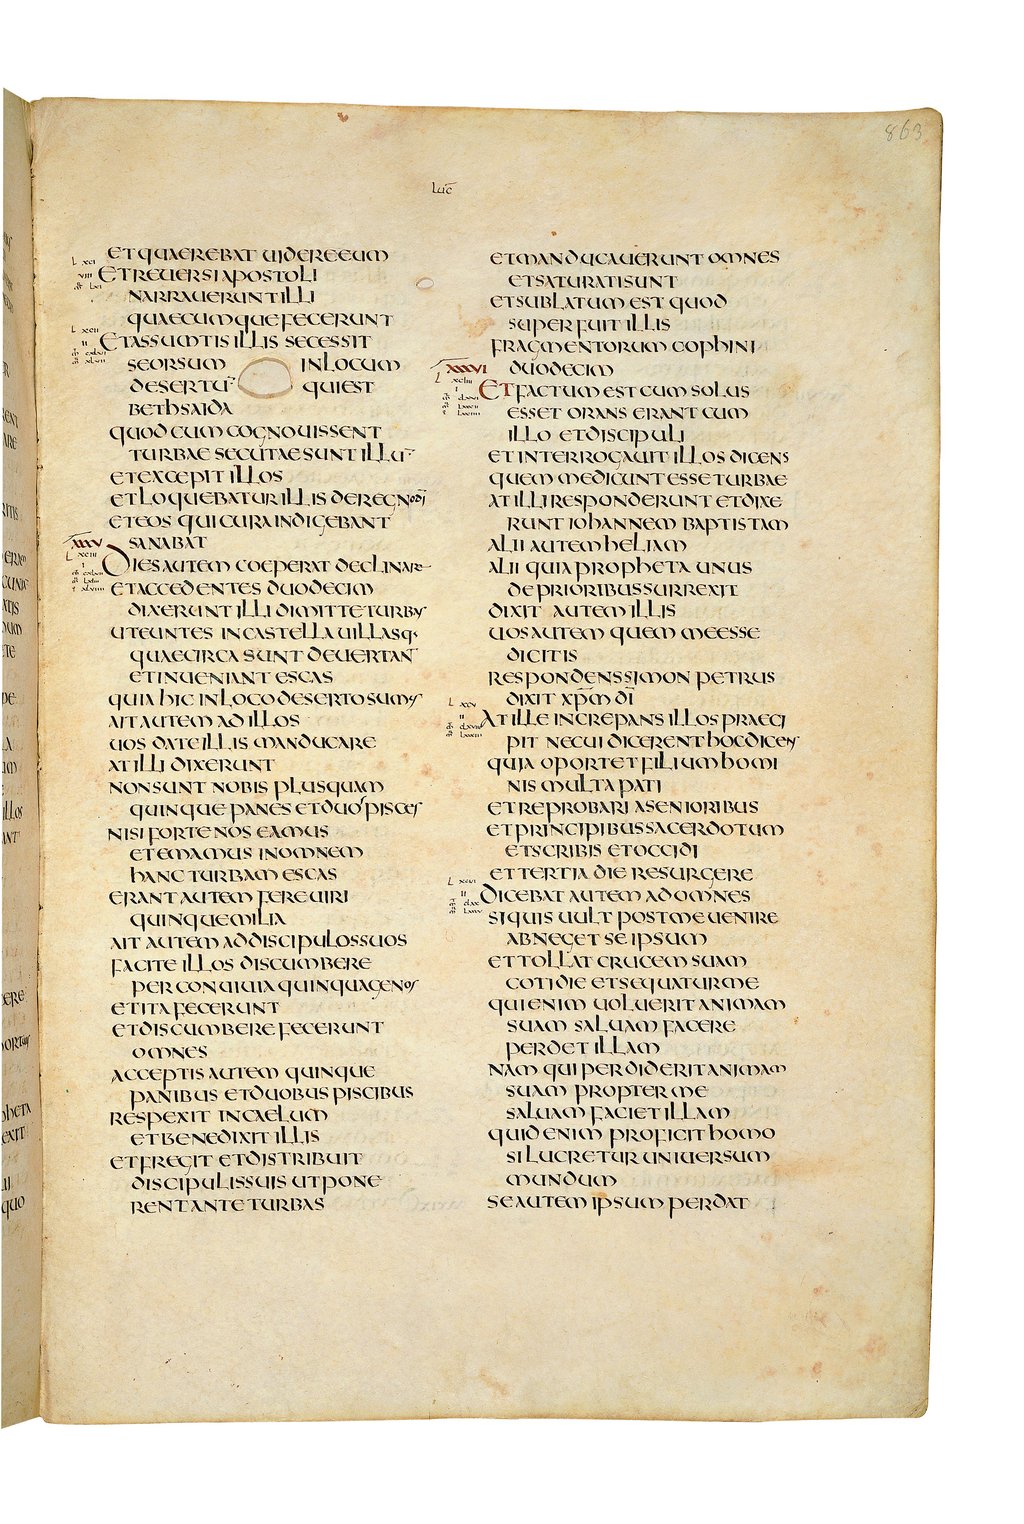 863
Luc̄
ET QUAEREBAT UIDERE EUM
ET REUERSI APOSTOLI
NARRAUERUNT ILLI
QUAECUMQUE FECERUNT
ET ASSUMTIS ILLIS SECESSIT
SEORSUM IN LOCUM
DESERTŪ QUI EST
BETHSAIDA
QUOD CUM COGNOUISSENT
TURBAE SECUTAE SUNT ILLŪ
ET EXCEPIT ILLOS
ET LOQUEBATUR ILLIS DE REGNO D̄I
ET EOS QUI CURA INDIGEBANT
XXXV SANABAT
DIES AUTEM COEPERAT DECLINARE
ET ACCEDENTES DUODECIM
DIXERUNT ILLI DIMITTE TURBAS
UT EUNTES IN CASTELLA UILLASQ·
QUAE CIRCA SUNT DEUERTANT
ET INUENIANT ESCAS
QUIA HIC IN LOCO DESERTO SUMUS
AIT AUTEM AD ILLOS
UOS DATE ILLIS MANDUCARE
AT ILLI DIXERUNT
NON SUNT NOBIS PLUS QUAM
QUINQUE PANES ET DUO PISCES
NISI FORTE NOS EAMUS
ET EMAMUS IN OMNEM
HANC TURBAM ESCAS
ERANT AUTEM FERE UIRI
QUINQUE MILIA
AIT AUTEM AD DISCIPULOS SUOS
FACITE ILLOS DISCUMBERE
PER CONUIUIA QUINQUAGENOS
ET ITA FECERUNT
ET DISCUMBERE FECERUNT
OMNES
ACCEPTIS AUTEM QUINQUE
PANIBUS ET DUOBUS PISCIBUS
RESPEXIT IN CAELUM
ET BENEDIXIT ILLIS
ET FREGIT ET DISTRIBUIT
DISCIPULIS SUIS UT PONE
RENT ANTE TURBAS
ET MANDUCAUERUNT OMNES
ET SATURATI SUNT
ET SUBLATUM EST QUOD
SUPERFUIT ILLIS
FRAGMENTORUM COPHINI
XXXVI DUODECIM
ET FACTUM EST CUM SOLUS
ESSET ORANS ERANT CUM
ILLO ET DISCIPULI
ET INTERROGAUIT ILLOS DICENS
QUEM ME DICUNT ESSE TURBAE
AT ILLI RESPONDERUNT ET DIXE
RUNT IOHANNEM BAPTISTAM
ALII AUTEM HELIAM
ALII QUIA PROPHETA UNUS
DE PRIORIBUS SURREXIT
DIXIT AUTEM ILLIS
UOS AUTEM QUEM ME ESSE
DICITIS
RESPONDENS SIMON PETRUS
DIXIT XP̄M D̄I
AT ILLE INCREPANS ILLOS PRAECI
PIT NE CUI DICERENT HOC DICENS
QUIA OPORTET FILIUM HOMI
NIS MULTA PATI
ET REPROBARI A SENIORIBUS
ET PRINCIPIBUS SACERDOTUM
ET SCRIBIS ET OCCIDI
ET TERTIA DIE RESURGERE
DICEBAT AUTEM AD OMNES
SI QUIS UULT POST ME UENIRE
ABNEGET SE IPSUM
ET TOLLAT CRUCEM SUAM
COTIDIE ET SEQUATUR ME
QUI ENIM UOLUERIT ANIMAM
SUAM SALUAM FACERE
PERDET ILLAM
NAM QUI PERDIDERIT ANIMAM
SUAM PROPTER ME
SALUAM FACIET ILLAM
QUID ENIM PROFICIT HOMO
SI LUCRETUR UNIUERSUM
MUNDUM
SE AUTEM IPSUM PERDAT